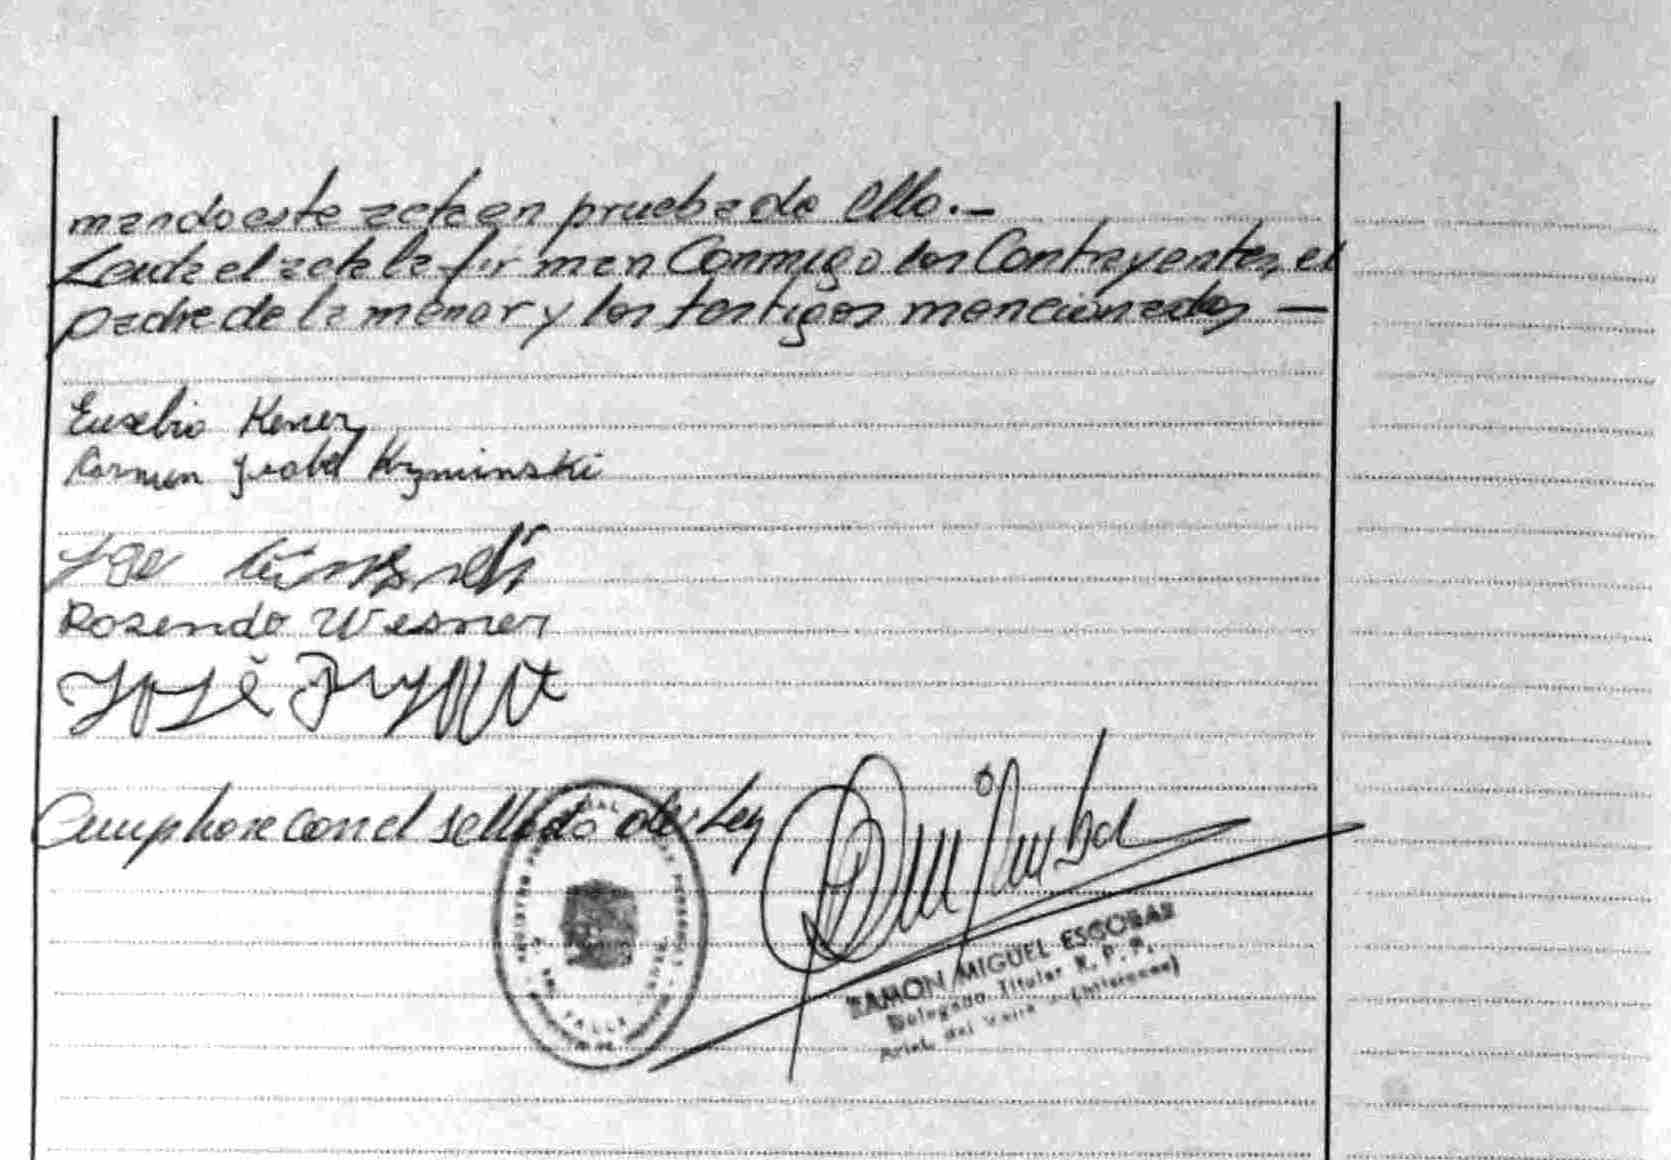 mando este acta en prueba de ello.—
Leida el acta la firman Conmigo los Contrayentes, el
padre de la menor y los testigos mencionados —
Eusebio Kener
Carmen Isabel Kyminski
Rosendo Wesner
José
Cumplase con el sellado de Ley
RAMON MIGUEL ESCOBAR
Delegado Titular R. P. P.
Arist. del Valle (Misiones)